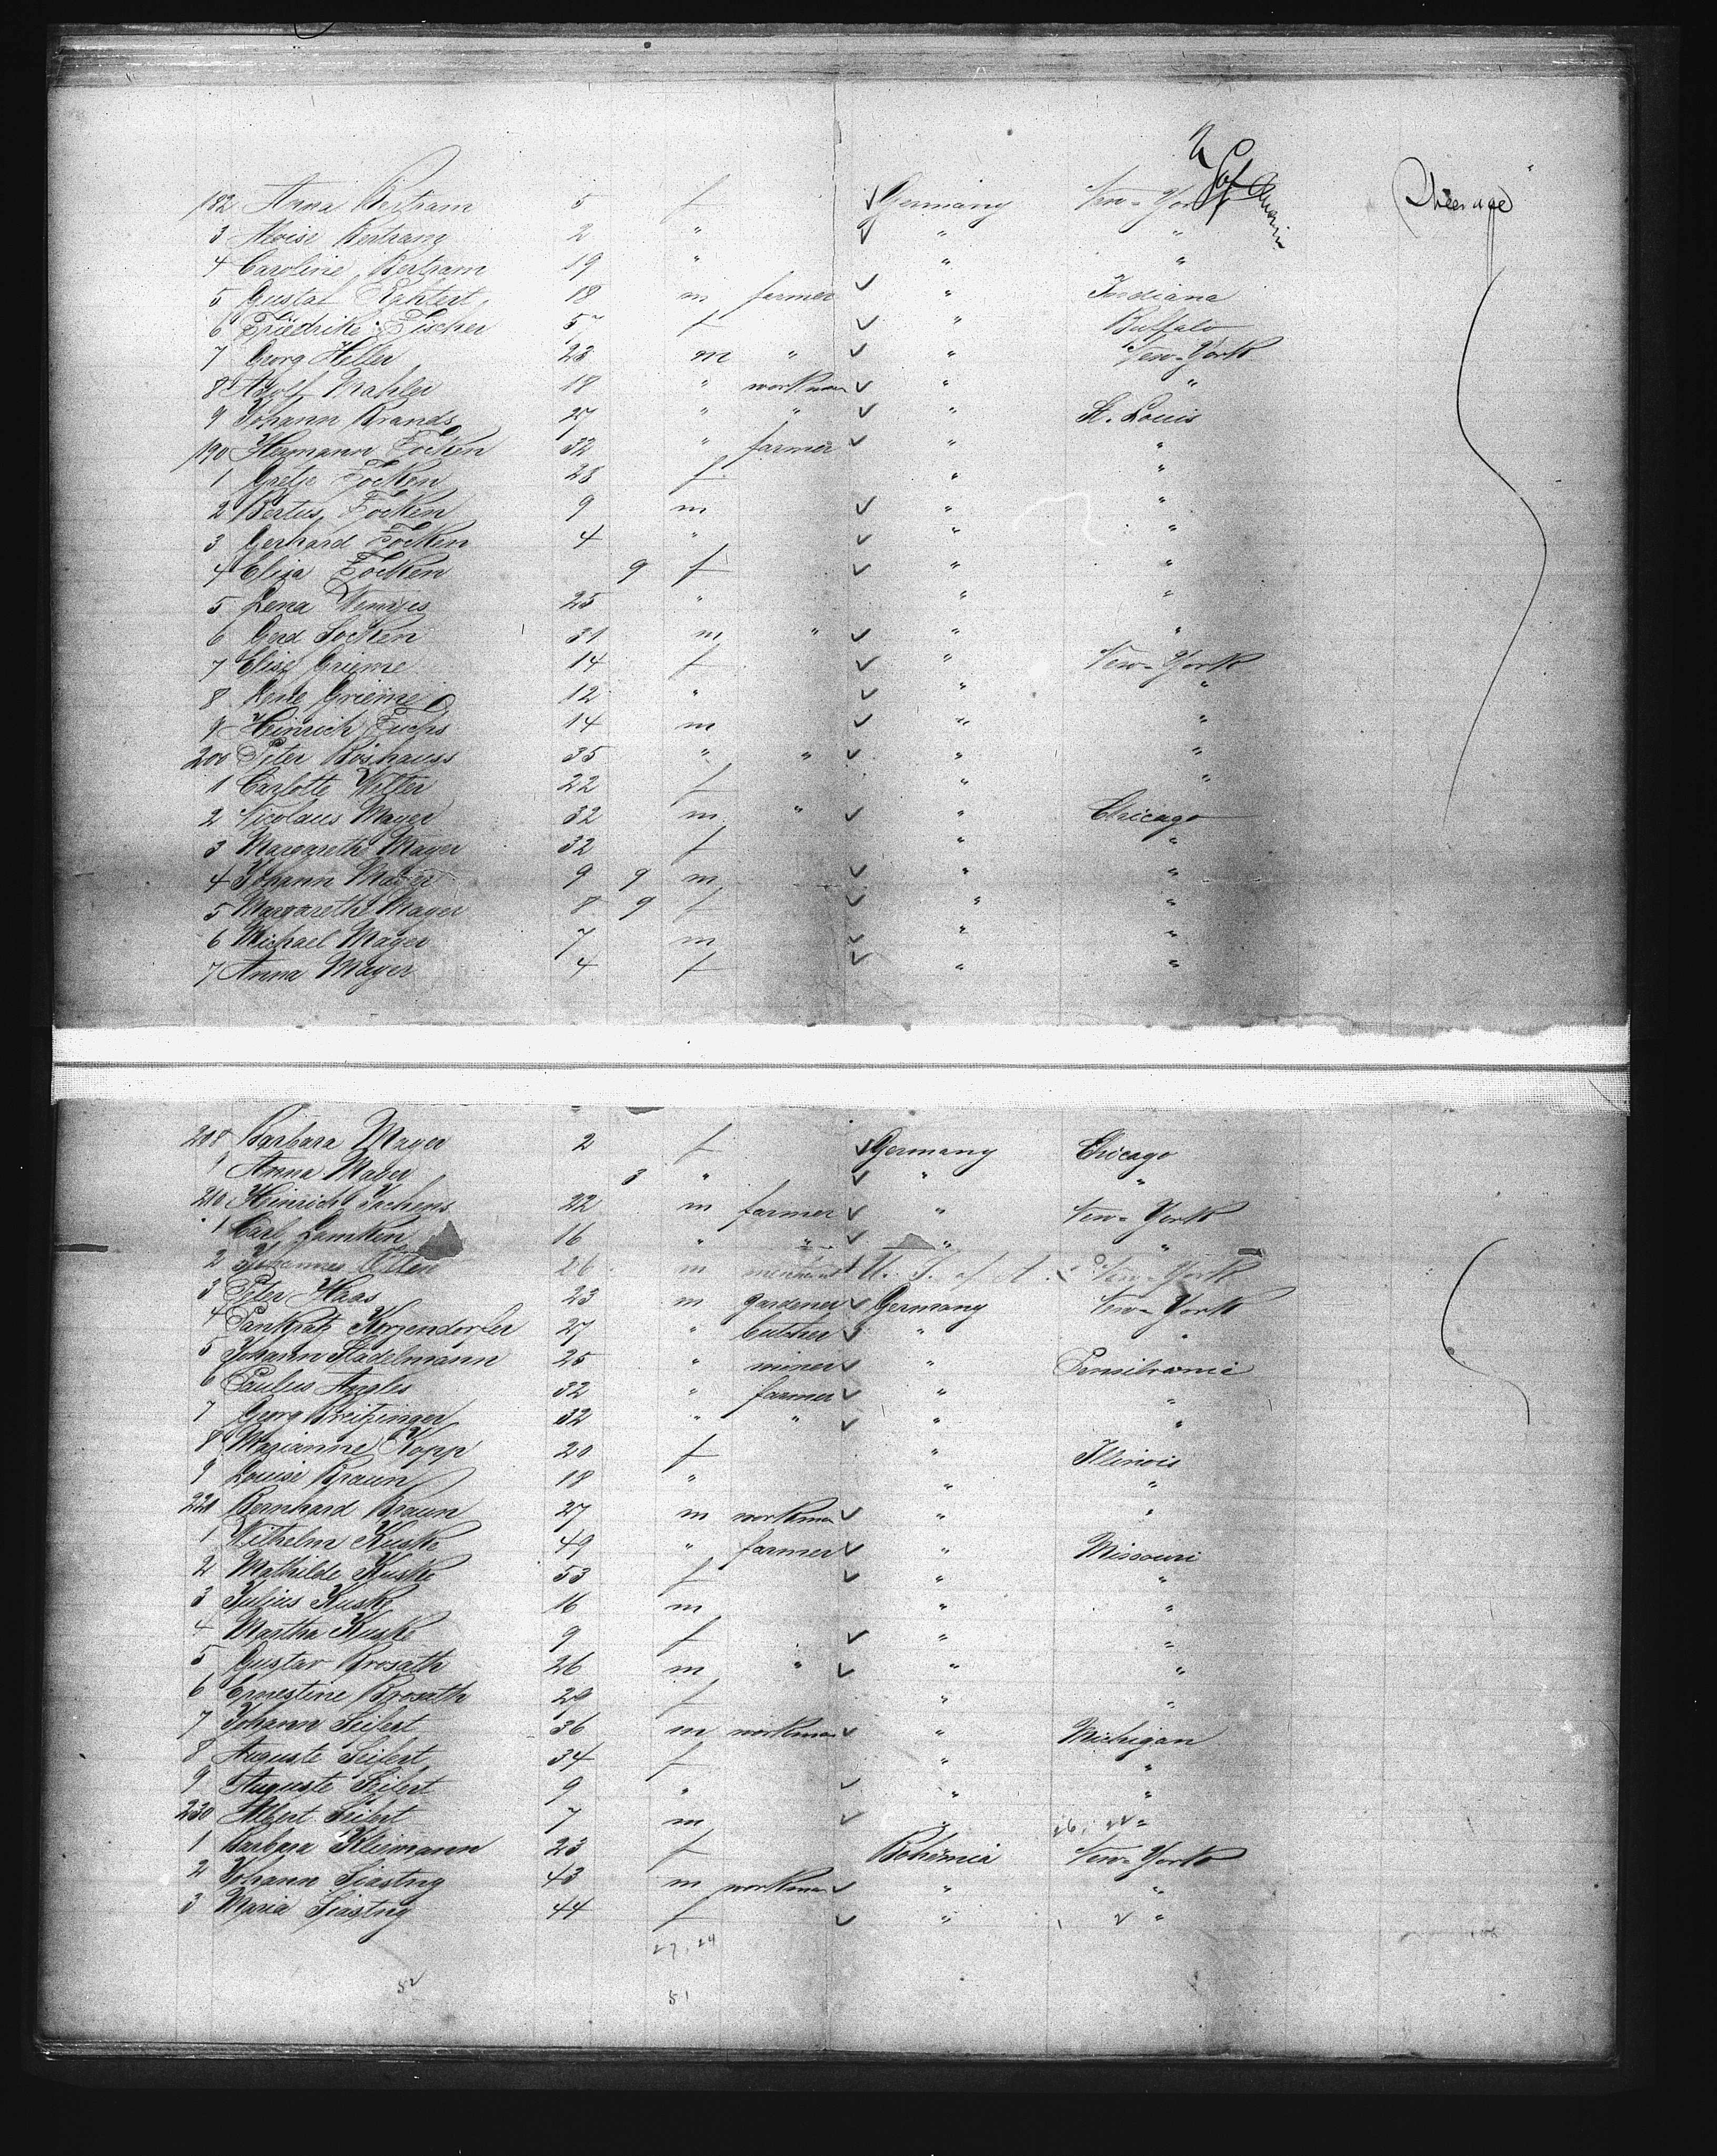 U S of America
182 Anna Bertram 5 f Germany New-York Steerage
3 Aloise Bertram 2 " " "
4 Caroline Bertram 19 " " "
5 Gustaf 18 m farmer " Indiana
6 Friedrike Fischer 57 f " Buffalo
7 Georg Heller 23 m " " New-York
8 Adolf Mahler 18 " workman " "
9 Johann Brands 27 " " " St. Louis
190 Hermann Focken 32 " farmer " "
1 Gretje Focken 28 f " "
2 Bertus Focken 9 m " "
3 Gerhard Focken 4 " " "
4 Elisa Focken 9 f " "
5 Lena 25 " " "
6 Gerd Focken 31 m " " "
7 Elise Grieme 14 f " New-York
8 Grieme 12 " " "
9 Heinrich Fuchs 14 m " "
200 Peter 35 " " " "
1 Carlotte Witter 22 f " "
2 Nicolaus Mayer 32 m " " Chicago
3 Margarethe Mayer 32 f " "
4 Johann Mayer 9 9 m " "
5 Margarethe Mayer 8 9 f " "
6 Michael Mayer 7 m " "
7 Anna Mayer 4 f " "
208 Barbara Mayer 2 f Germany Chicago
9 Anna Mayer 3 " " "
210 Heinrich Jachens 22 m farmer " New-York
1 Carl Lamken 16 " " " "
2 Johannes 26 m merchant U. S. of A. New-York
3 Peter Haas 23 m gardener Germany New-York
4 Pankratz Herzendorfer 27 " butcher " "
5 Johann Stadelmann 25 " miner " Pensilvania
6 Paulus 32 " farmer " "
7 Georg Breitzinger 32 " " " "
8 Marianne Kopp 20 f " Illinois
9 Louise Braun 18 " " "
220 Bernhard Braun 27 m workman " "
1 Wilhelm Kuske 49 " farmer " Missouri
2 Mathilde Kuske 53 f " "
3 Julius Kuske 16 m " "
4 Martha Kuske 9 f " "
5 Gustav Brosath 26 m " " "
6 Ernestine Brosath 29 f " "
7 Johann Seifert 36 m workman " Michigan
8 Auguste Seifert 34 f " "
9 Auguste Seifert 9 " " "
230 Albert Seifert 7 m " "
1 Barbara Kliemann 23 f Bohemia New-York
2 Johann Siastny 43 m workman " "
3 Maria Siastny 44 f " "
27, 24
52
51